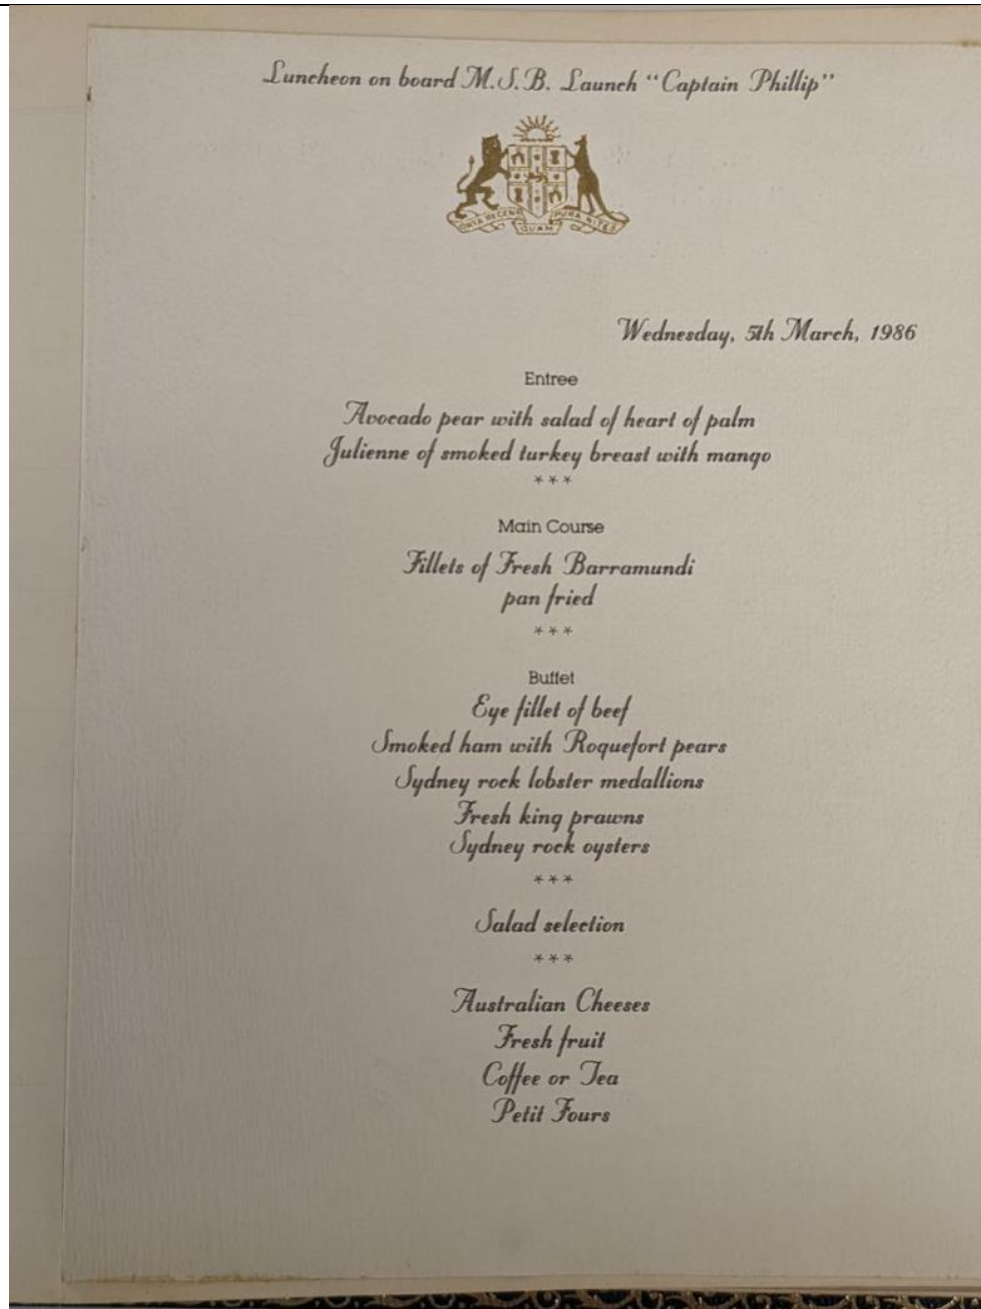 Luncheon on board M.S.B. Launch “Captain Phillip”
ORTA RECENS QUAM PURA NITES
Wednesday, 5th March, 1986
Entree
Avocado pear with salad of heart of palm
Julienne of smoked turkey breast with mango
***
Main Course
Fillets of Fresh Barramundi
pan fried
***
Buffet
Eye fillet of beef
Smoked ham with Roquefort pears
Sydney rock lobster medallions
Fresh king prawns
Sydney rock oysters
***
Salad selection
***
Australian Cheeses
Fresh fruit
Coffee or Tea
Petit Fours